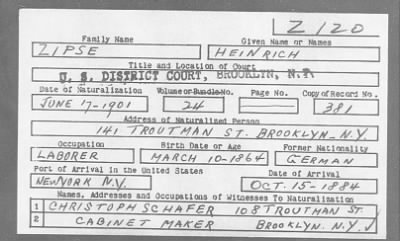 Z120
Family Name Given Name or Names
ZIPSE HEINRICH
Title and Location of Court
U. S. DISTRICT COURT, BROOKLYN, N.Y.
Date of Naturalization Volume or Bundle No. Page No. Copy of Record No.
JUNE 17-1901 24 381
Address of Naturalized Person
141 TROUTMAN ST. BROOKLYN_N.Y.
Occupation Birth Date or Age Former Nationality
LABORER MARCH 10-1864 GERMAN
Port of Arrival in the United States Date of Arrival
NEW YORK N.Y. OCT. 15-1884
Names, Addresses and Occupations of Witnesses To Naturalization
1 CHRISTOPH SCHAFER 108 TROUTMAN ST.
2 CABINET MAKER BROOKLYN. N.Y.